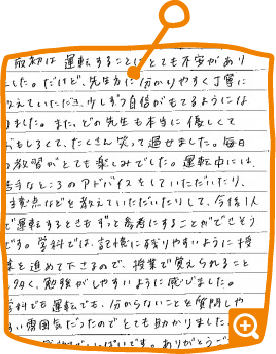 最初は運転することにとても不安があり
ました。だけど、先生方に分かりやすく丁寧に
教えていただき、少しずつ自信がもてるようにな
りました。また、どの先生も本当に優しくて
おもしろくて、たくさん笑って過せました。毎日
の教習がとても楽しみでした。運転中には、
苦手なところのアドバイスをしていただいたり、
注意点などを教えていただいたりして、今後1人
で運転するときもずっと参考にすることができそう
です。学科では、記憶に残りやすいように授
業を進めて下さるので、授業で覚えられること
も多く、勉強がしやすいように感じました。
学科でも運転でも、分からないことを質問しや
すい雰囲気だったのでとても助かりました。
いっぱいです。ありがとうご